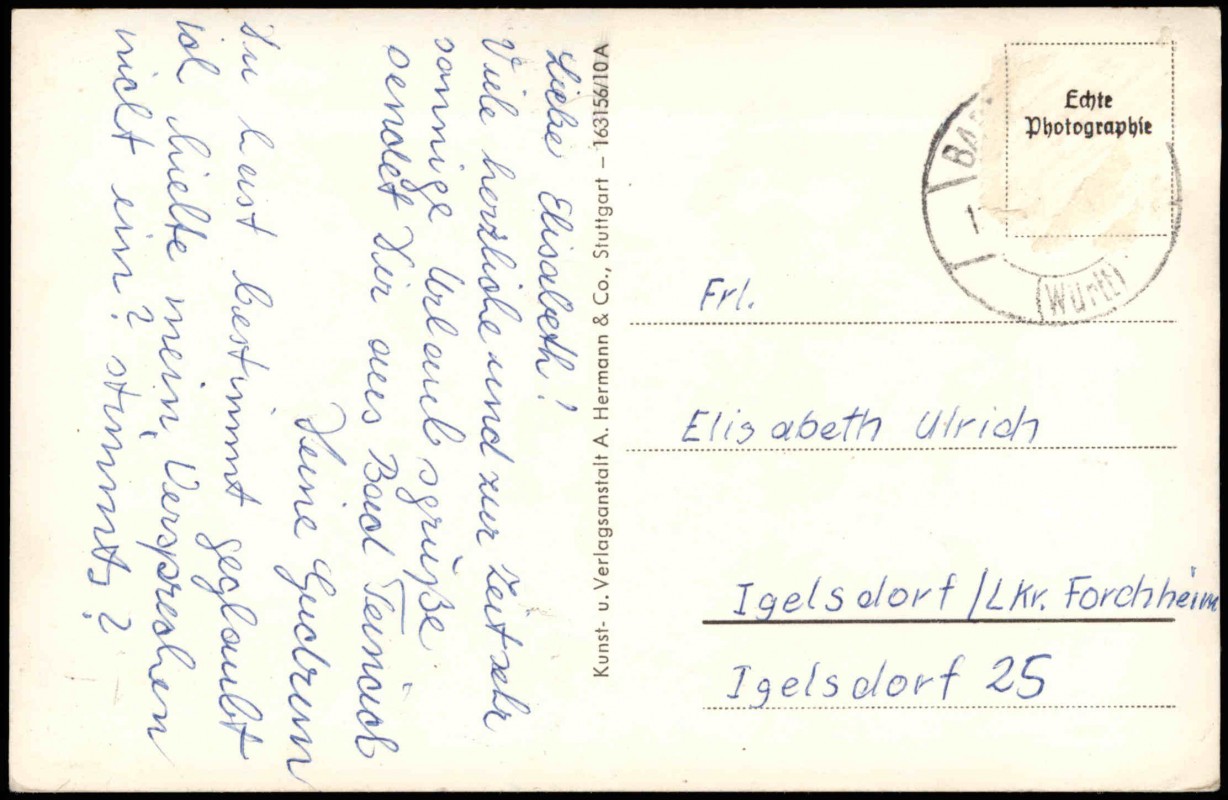 Liebe Elisabeth!
Viele herzliche und zur Zeit sehr
sonnige Urlaubsgrüße
sendet Dir aus Bad Teinach
Deine Gudrun
Du hast bestimmt geglaubt
ich hielte mein Versprechen
nicht ein? stimmts?
Kunst- u. Verlagsanstalt A. Hermann & Co., Stuttgart – 163156/10 A
Echte
Photographie
BA
(Württ)
Frl.
Elisabeth Ulrich
Igelsdorf / Lkr. Forchheim
Igelsdorf 25